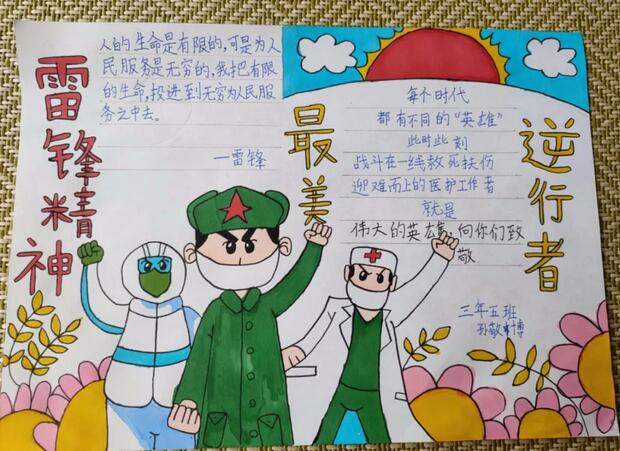 雷锋精神
人的生命是有限的,可是为人
民服务是无穷的,我把有限
的生命,投进到无穷为人民服
务之中去。
—雷锋
最美
逆行者
每个时代
都有不同的“英雄”
此时此刻
战斗在一线救死扶伤
迎难而上的医护工作者
就是
伟大的英雄,向你们致
敬
三年五班
孙敬博